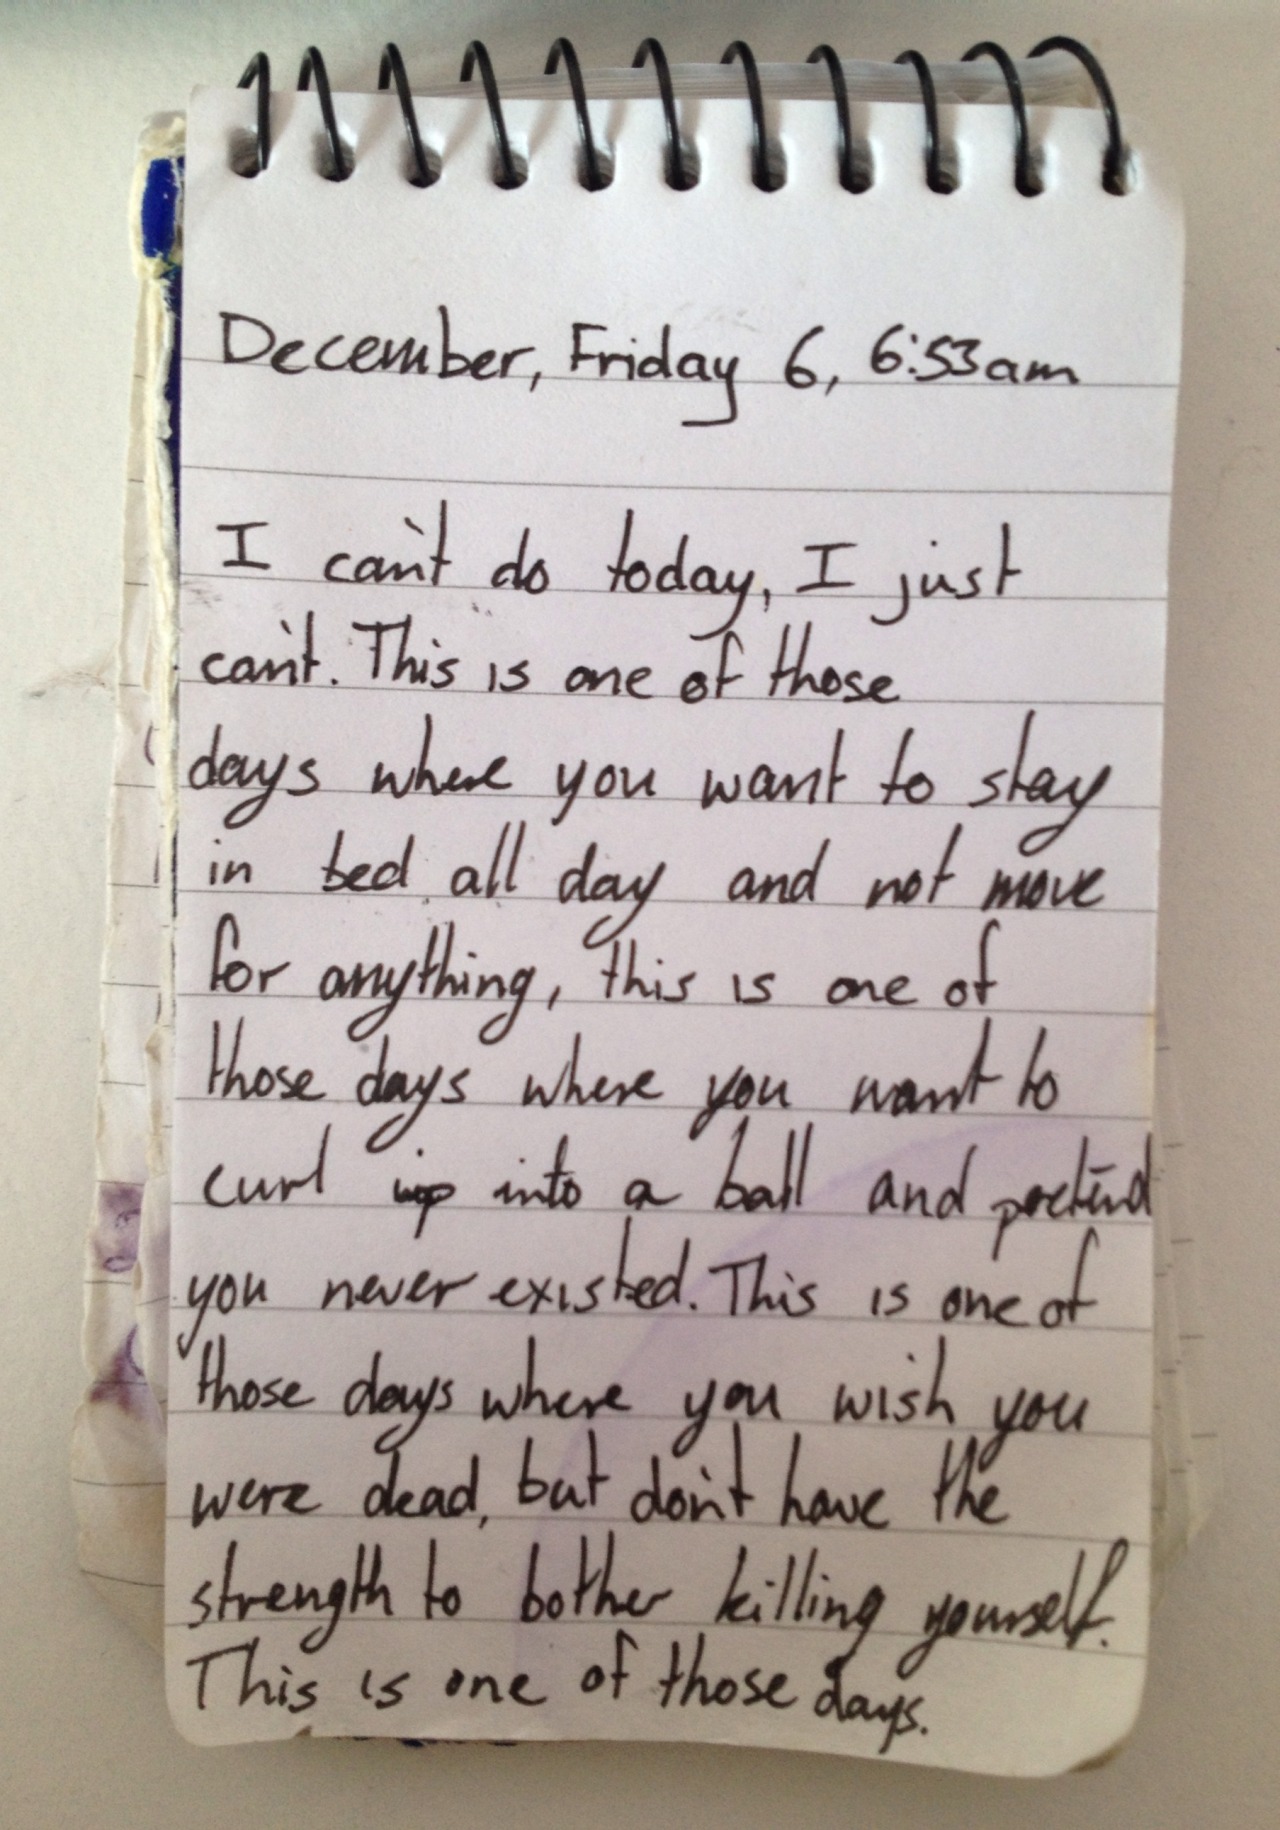 December, Friday 6, 6:53am
I can't do today, I just
can't. This is one of those
days where you want to stay
in bed all day and not move
for anything, this is one of
those days where you want to
curl up into a ball and pretend
you never existed. This is one of
those days where you wish you
were dead, but don't have the
strength to bother killing yourself.
This is one of those days.